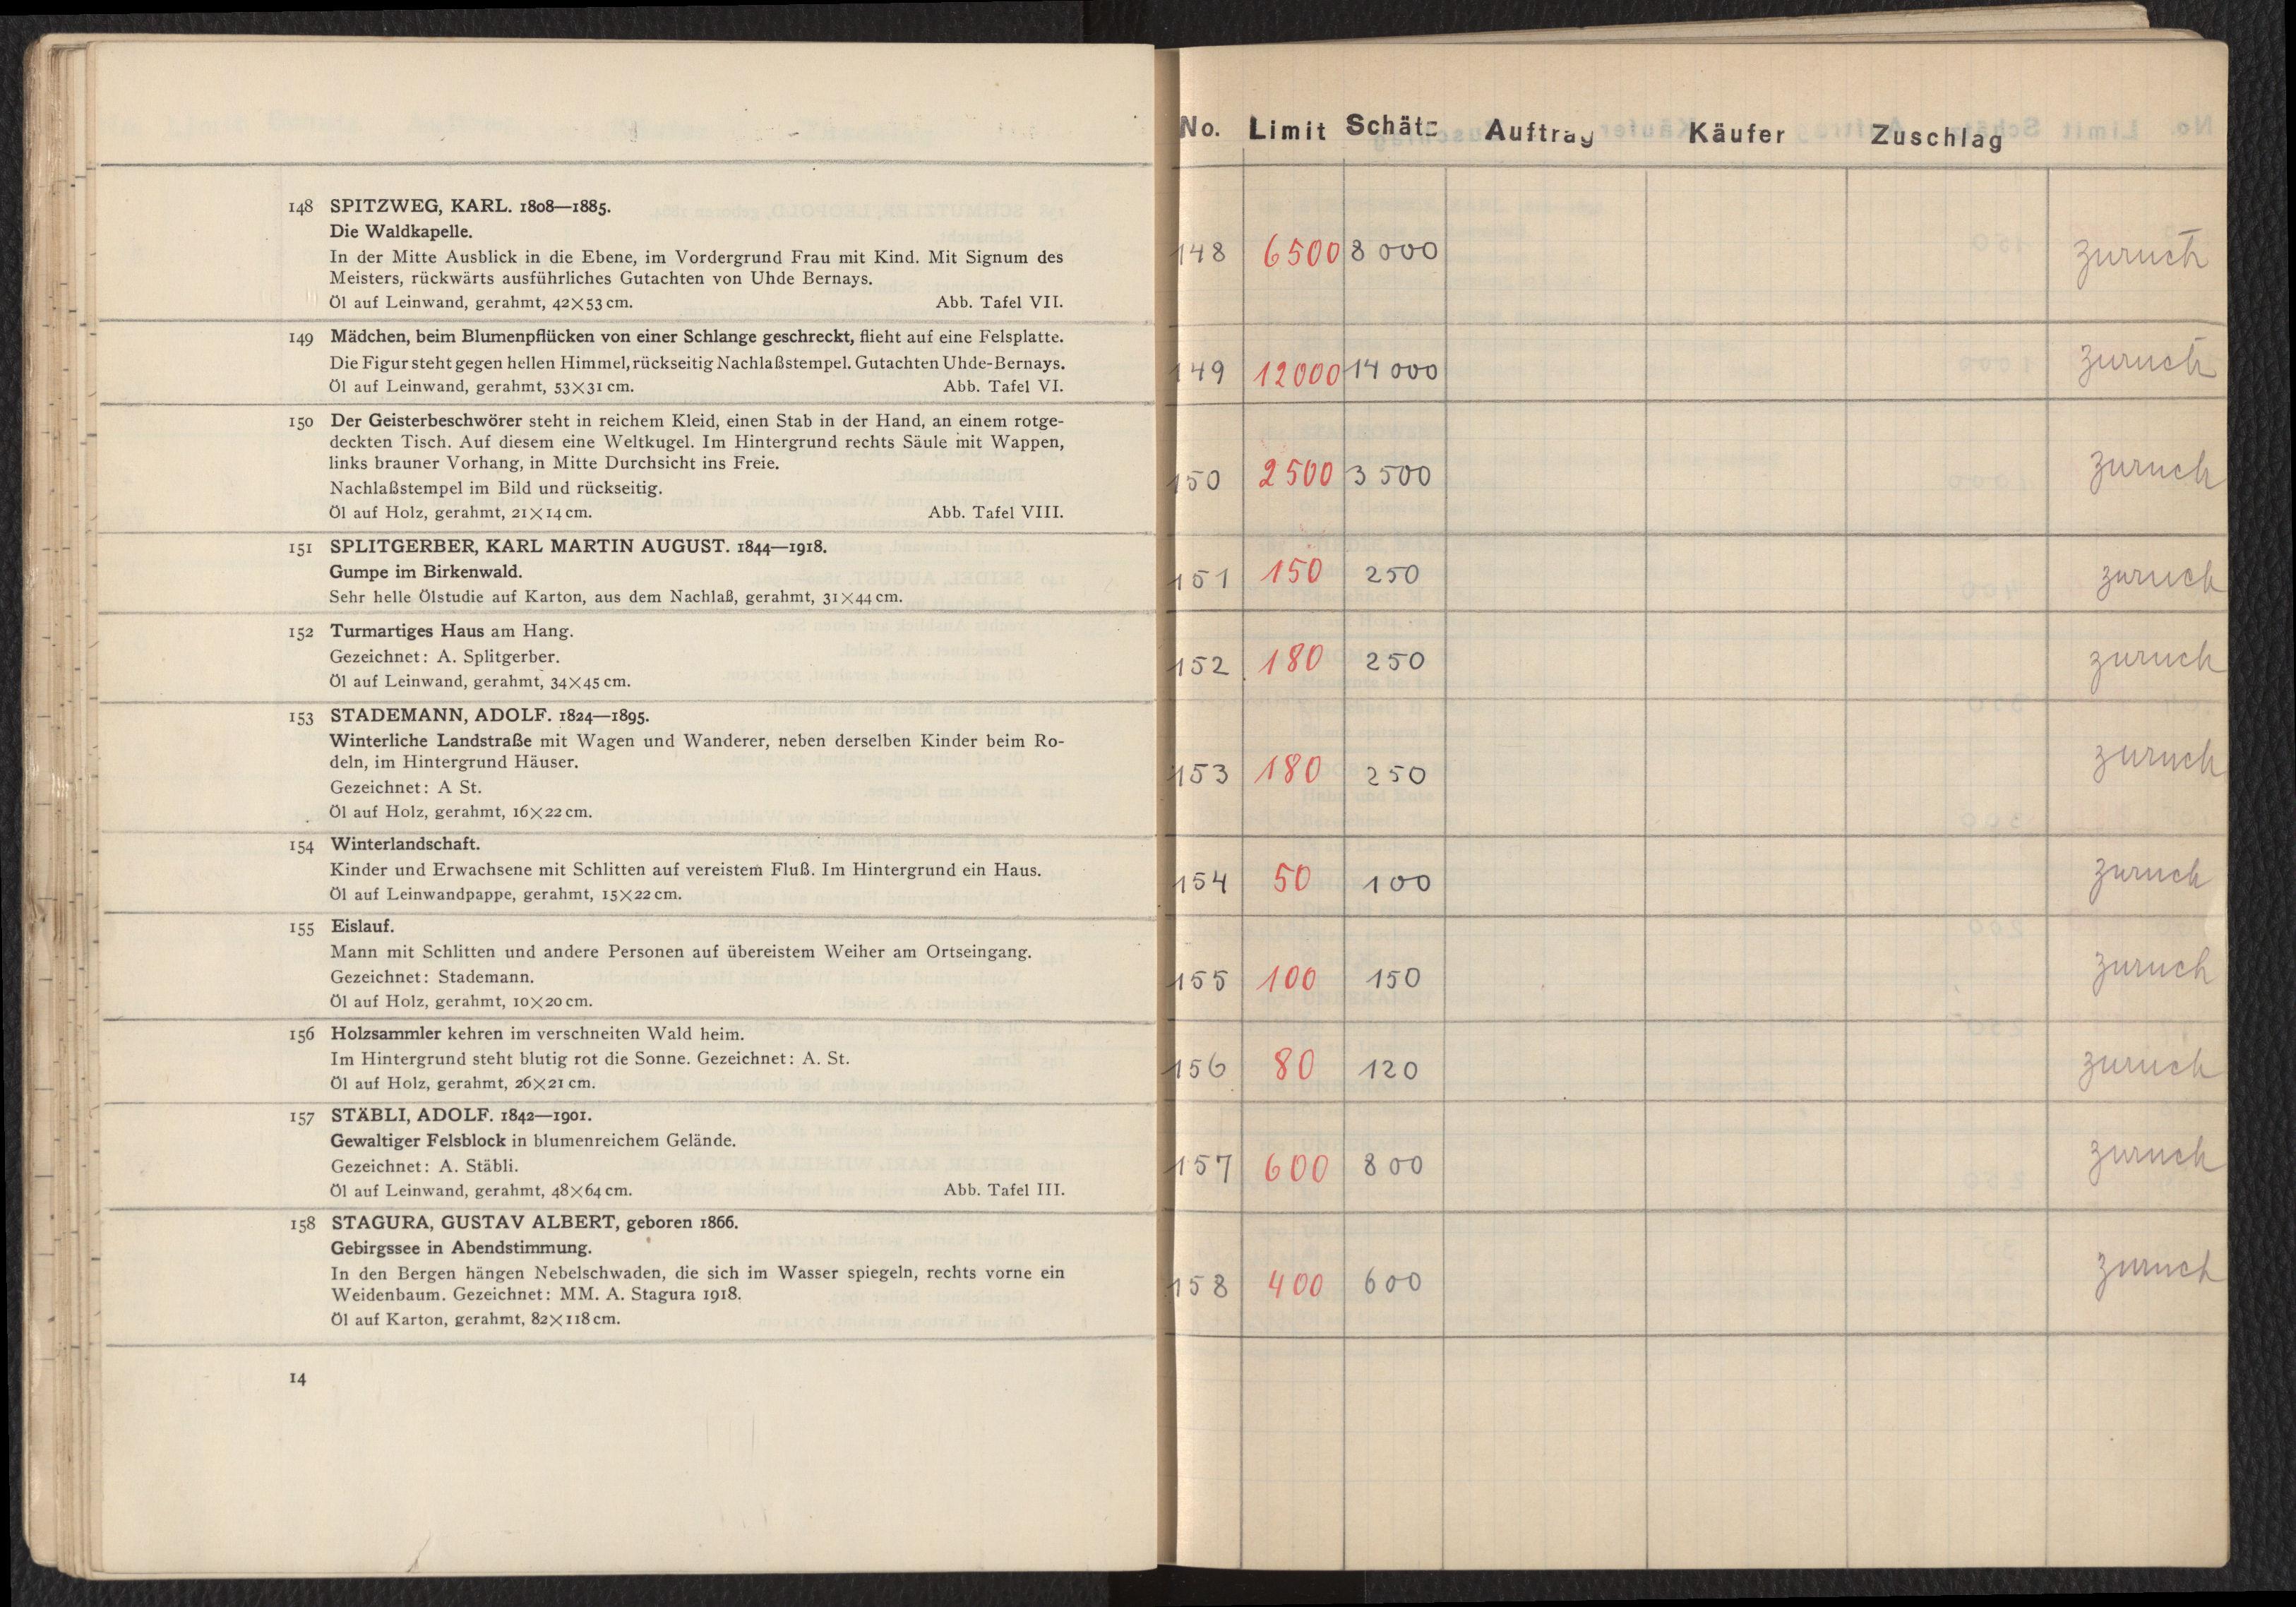 148 SPITZWEG, KARL. 1808—1885.
Die Waldkapelle.
In der Mitte Ausblick in die Ebene, im Vordergrund Frau mit Kind. Mit Signum des
Meisters, rückwärts ausführliches Gutachten von Uhde Bernays.
Öl auf Leinwand, gerahmt, 42×53 cm. Abb. Tafel VII.
149 Mädchen, beim Blumenpflücken von einer Schlange geschreckt, flieht auf eine Felsplatte.
Die Figur steht gegen hellen Himmel, rückseitig Nachlaßstempel. Gutachten Uhde-Bernays.
Öl auf Leinwand, gerahmt, 53×31 cm. Abb. Tafel VI.
150 Der Geisterbeschwörer steht in reichem Kleid, einen Stab in der Hand, an einem rotge-
deckten Tisch. Auf diesem eine Weltkugel. Im Hintergrund rechts Säule mit Wappen,
links brauner Vorhang, in Mitte Durchsicht ins Freie.
Nachlaßstempel im Bild und rückseitig.
Öl auf Holz, gerahmt, 21×14 cm. Abb. Tafel VIII.
151 SPLITGERBER, KARL MARTIN AUGUST. 1844—1918.
Gumpe im Birkenwald.
Sehr helle Ölstudie auf Karton, aus dem Nachlaß, gerahmt, 31×44 cm.
152 Turmartiges Haus am Hang.
Gezeichnet: A. Splitgerber.
Öl auf Leinwand, gerahmt, 34×45 cm.
153 STADEMANN, ADOLF. 1824—1895.
Winterliche Landstraße mit Wagen und Wanderer, neben derselben Kinder beim Ro-
deln, im Hintergrund Häuser.
Gezeichnet: A St.
Öl auf Holz, gerahmt, 16×22 cm.
154 Winterlandschaft.
Kinder und Erwachsene mit Schlitten auf vereistem Fluß. Im Hintergrund ein Haus.
Öl auf Leinwandpappe, gerahmt, 15×22 cm.
155 Eislauf.
Mann mit Schlitten und andere Personen auf übereistem Weiher am Ortseingang.
Gezeichnet: Stademann.
Öl auf Holz, gerahmt, 10×20 cm.
156 Holzsammler kehren im verschneiten Wald heim.
Im Hintergrund steht blutig rot die Sonne. Gezeichnet: A. St.
Öl auf Holz, gerahmt, 26×21 cm.
157 STÄBLI, ADOLF. 1842—1901.
Gewaltiger Felsblock in blumenreichem Gelände.
Gezeichnet: A. Stäbli.
Öl auf Leinwand, gerahmt, 48×64 cm. Abb. Tafel III.
158 STAGURA, GUSTAV ALBERT, geboren 1866.
Gebirgssee in Abendstimmung.
In den Bergen hängen Nebelschwaden, die sich im Wasser spiegeln, rechts vorne ein
Weidenbaum. Gezeichnet: MM. A. Stagura 1918.
Öl auf Karton, gerahmt, 82×118 cm.
14
No. Limit Schätz Auftrag Käufer Zuschlag
148 6500 8 000 zurück
149 12000 14 000 zurück
150 2500 3 500 zuruck
151 150 250 zuruck
152 180 250 zuruck
153 180 250 zuruck
154 50 100 zuruck
155 100 150 zuruck
156 80 120 zuruck
157 600 800 zuruck
158 400 600 zuruck